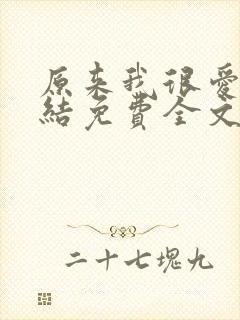 原来我很爱
結免費全文
二十七塊九